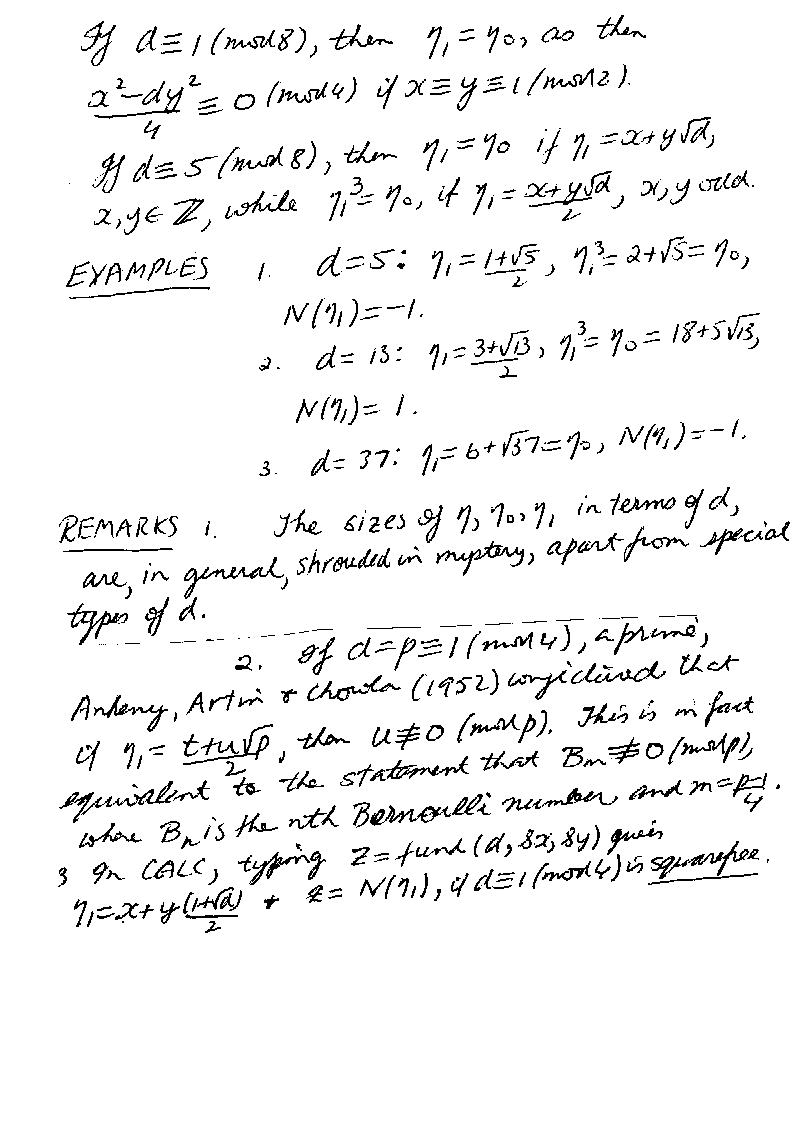 If d≡1 (mod 8), then η₁ = η₀, as then
(x²-dy²)/4 ≡ 0 (mod 4) if x≡y≡1 (mod 2).
If d≡5 (mod 8), then η₁ = η₀ if η₁ = x+y√d,
x,y∈ℤ, while η₁³ = η₀, if η₁ = (x+y√d)/2, x,y odd.
EXAMPLES 1. d=5: η₁ = (1+√5)/2, η₁³ = 2+√5 = η₀,
N(η₁) = -1.
2. d = 13: η₁ = (3+√13)/2, η₁³ = η₀ = 18+5√13,
N(η₁) = 1.
3. d = 37: η₁ = 6+√37 = η₀, N(η₁) = -1.
REMARKS 1. The sizes of η, η₀, η₁ in terms of d,
are, in general, shrouded in mystery, apart from special
types of d.
2. If d=p≡1 (mod 4), a prime,
Ankeny, Artin & Chowla (1952) conjectured that
if η₁ = (t+u√p)/2, then u≢0 (mod p). This is in fact
equivalent to the statement that Bₘ≢0 (mod p),
where Bₙ is the nth Bernoulli number, and m = (p-1)/4.
3 In CALC, typing z = fund(d, &x, &y) gives
η₁ = x+y(1+√d)/2 & z = N(η₁), if d≡1 (mod 4) is squarefree.